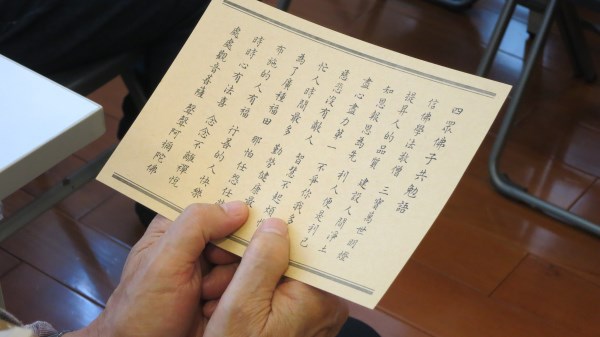 四眾佛子共勉語
信佛學法敬僧 三寶萬世明燈
提昇人的品質 建設人間淨土
知恩報恩為先 利人便是利己
盡心盡力第一 不爭你我多
慈悲沒有敵人 智慧不起煩
忙人時間最多 勤勞健康最
為了廣種福田 那怕任怨任
布施的人有福 行善的人快樂
時時心有法喜 念念不離禪悅
處處觀音菩薩 聲聲阿彌陀佛